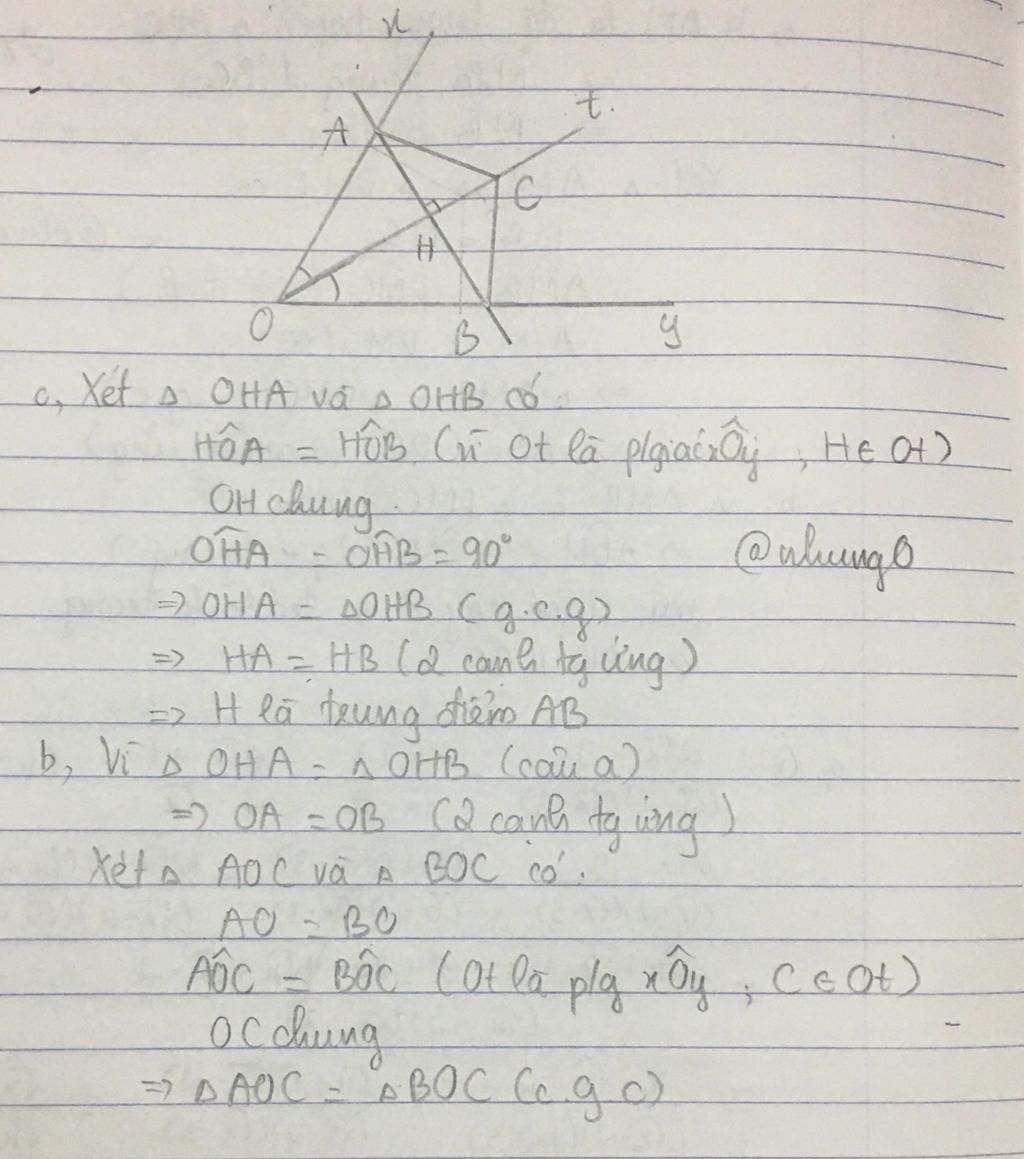 x
t.
A
C
H
O
B
y
a, Xét △ OHA và △ OHB có:
HÔA = HÔB (vì Ot là p/giác xÔy, H ∈ Ot)
OH chung.
OĤA = OĤB = 90°
@nhung0
=> OHA = △OHB (g.c.g)
=> HA = HB (2 cạnh tg ứng)
=> H là trung điểm AB
b, Vì △ OHA = △ OHB (câu a)
=> OA = OB (2 cạnh tg ứng)
Xét △ AOC và △ BOC có:
AO = BO
AÔC = BÔC (Ot là p/g xÔy, C ∈ Ot)
OC chung
=> △AOC = △BOC (c.g.c)